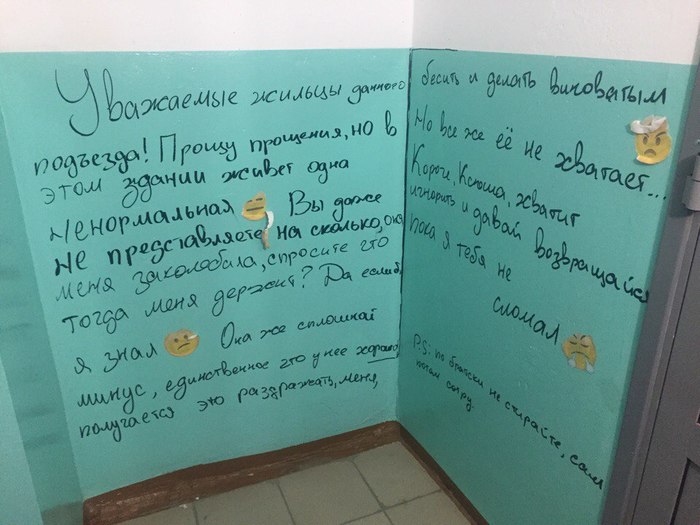 Уважаемые жильцы данного
подъезда! Прошу прощения, но в
этом здании живет одна
ненормальная Вы даже
не представляете, на сколько, она
меня заколебала, спросите что
тогда меня держит? Да если б
я знал Она же сплошной
минус, единственное что у нее хорошо
получается это раздражать, меня,
бесить и делать виноватым
Но все же её не хватает...
Короч, Ксюша, хватит
игнорить и давай возвращайся
пока я тебя не
сломал
P.S: по братски не стирайте, сам
потом сотру.